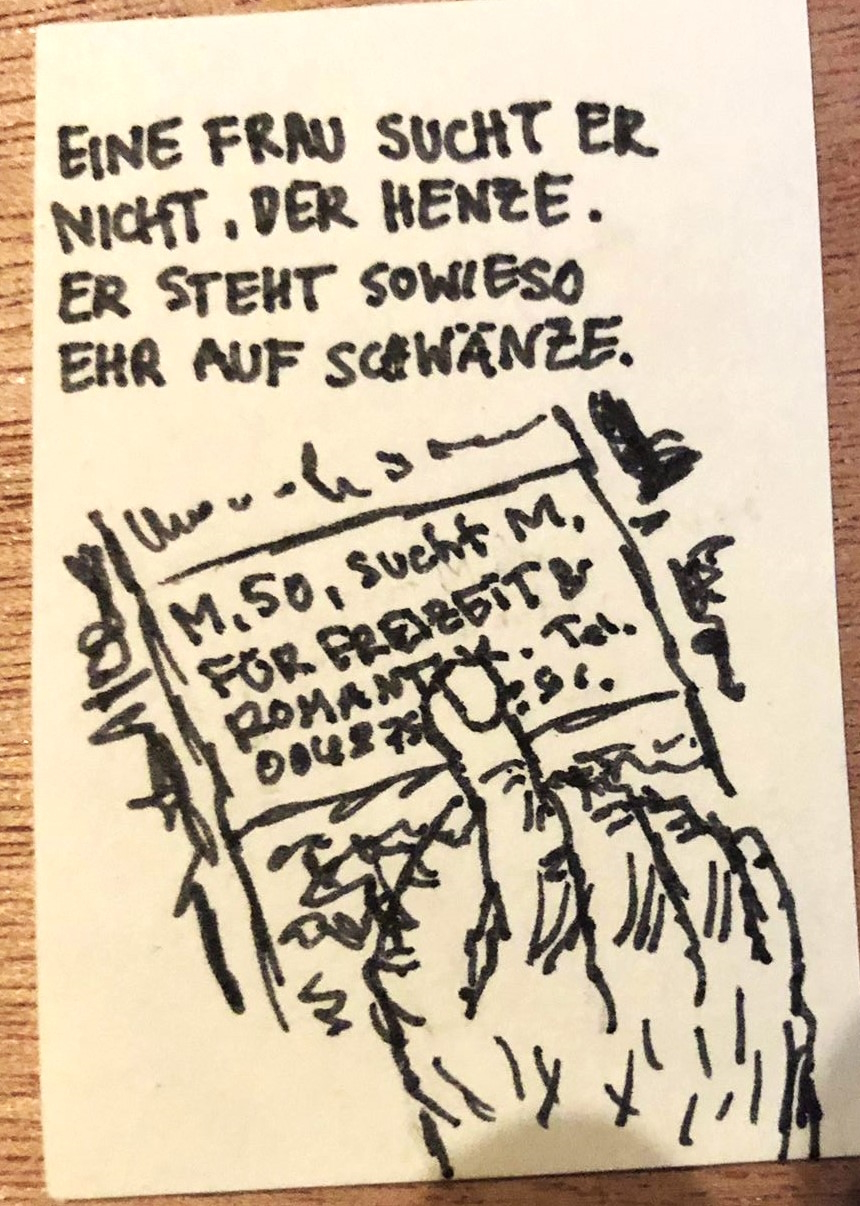 EINE FRAU SUCHT ER
NICHT, DER HENZE.
ER STEHT SOWIESO
EHR AUF SCHWÄNZE.
M, 50, sucht M,
FÜR FREIZEIT &
ROMANTIK. Tel.